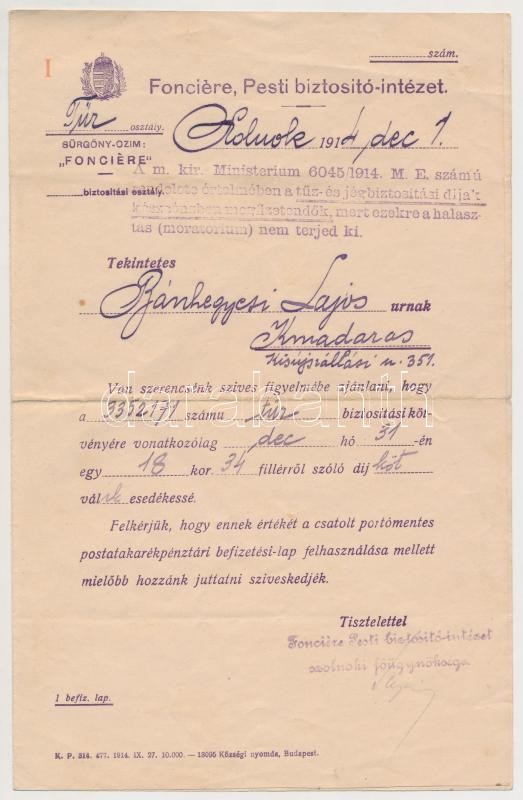 szám.
I
Foncière, Pesti biztositó-intézet.
Tűz osztály.
Szolnok 1914, dec 1.
SÜRGÖNY-CZIM:
„FONCIÈRE”
biztositási osztály.
A m. kir. Ministerium 6045/1914. M. E. számú
rendelete értelmében a tűz- és jégbiztositási dijak
készpénzben megfizetendők, mert ezekre a halasz-
tás (moratorium) nem terjed ki.
Tekintetes
Bánhegyesi Lajos urnak
Kmadaras
Kisújszállási u. 351.
Van szerencsénk szives figyelmébe ajánlani, hogy
a 3352171 számu tűz biztositási köt-
vényére vonatkozólag dec hó 31-én
egy 18 kor. 34 fillérről szóló dij köt
vál ik esedékessé.
Felkérjük, hogy ennek értékét a csatolt portómentes
postatakarékpénztári befizetési-lap felhasználása mellett
mielőbb hozzánk juttatni sziveskedjék.
Tisztelettel
Foncière Pesti biztositó-intézet
szolnoki főügynöksége
1 befiz. lap.
K. P. 314. 477. 1914. IX. 27. 10.000. — 13095 Községi nyomda, Budapest.
darabanth